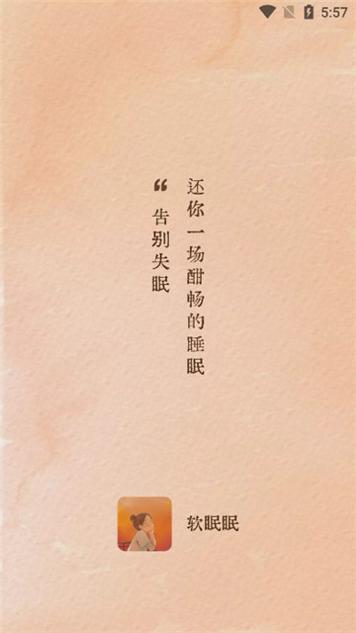 5:57
“告别失眠
还你一场酣畅的睡眠
软眠眠